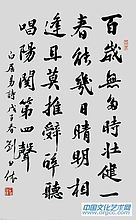 百歲無多時壯健一
春能幾日晴明相
逢且莫推辭醉聽
唱陽關第四聲
白居易詩戊子春劉